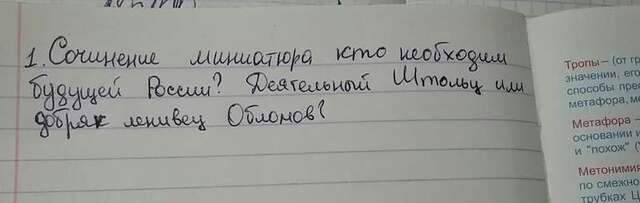 1. Сочинение миниатюра кто необходим
будущей России? Деятельный Штольц или
добряк ленивец Обломов?
Тропы – (от гр
значении, его
способы пре
метафора, м
Метафора –
основании и
и "похож" (
Метонимия
по смежно
трубках Ц